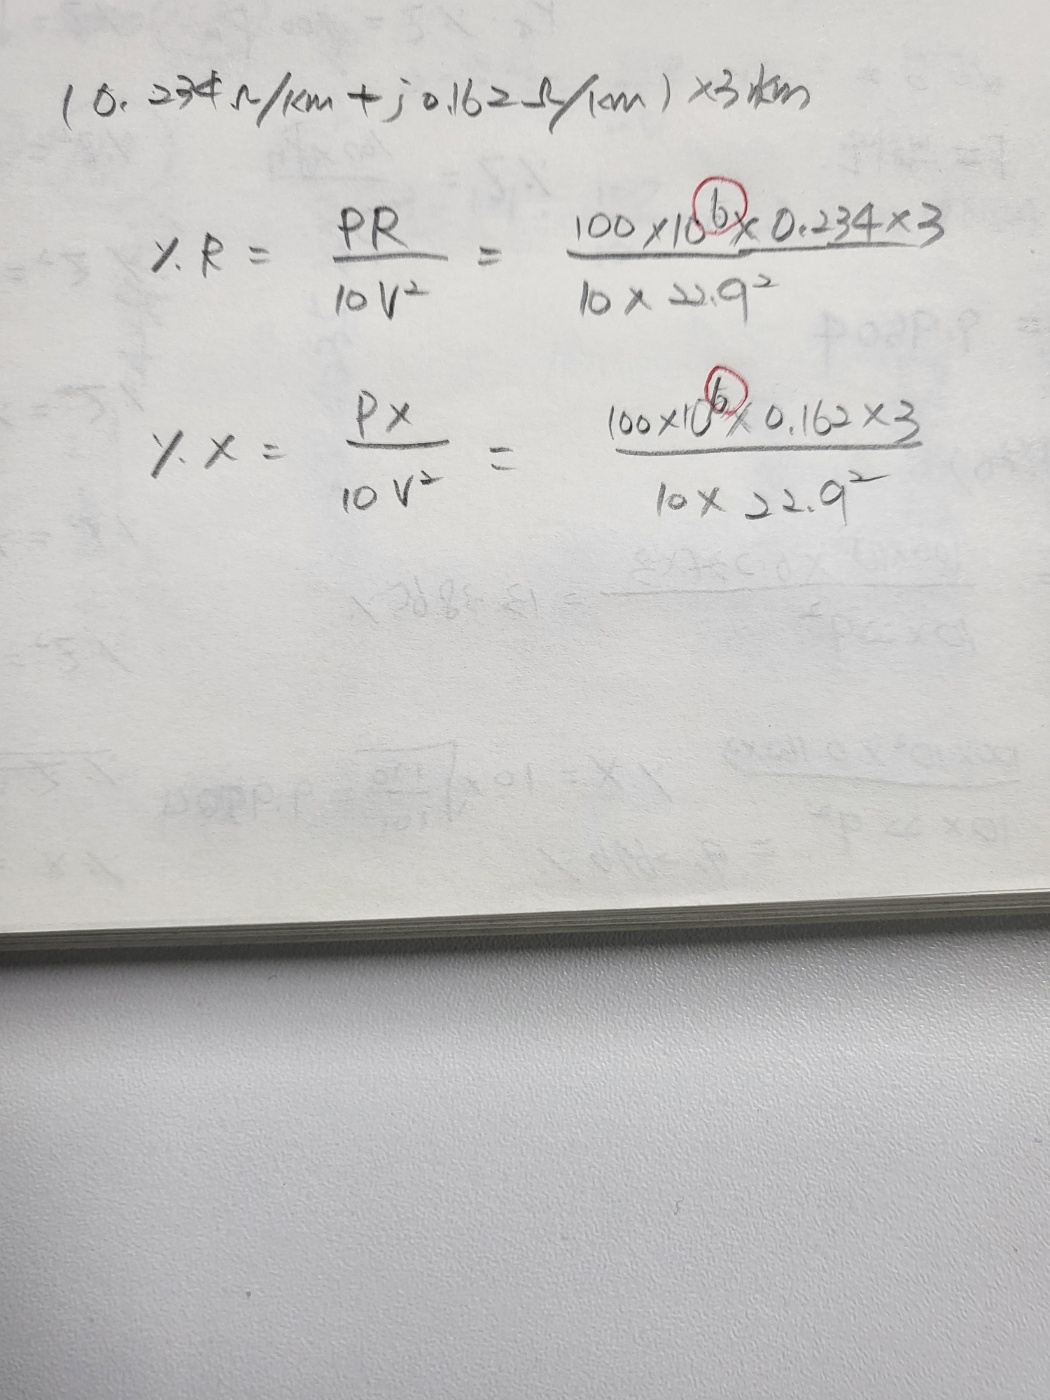 (0.234Ω/km+j0.162Ω/km)×3km
%R = PR/10V² = 100×10⁶×0.234×3/10×22.9²
%X = PX/10V² = 100×10⁶×0.162×3/10×22.9²